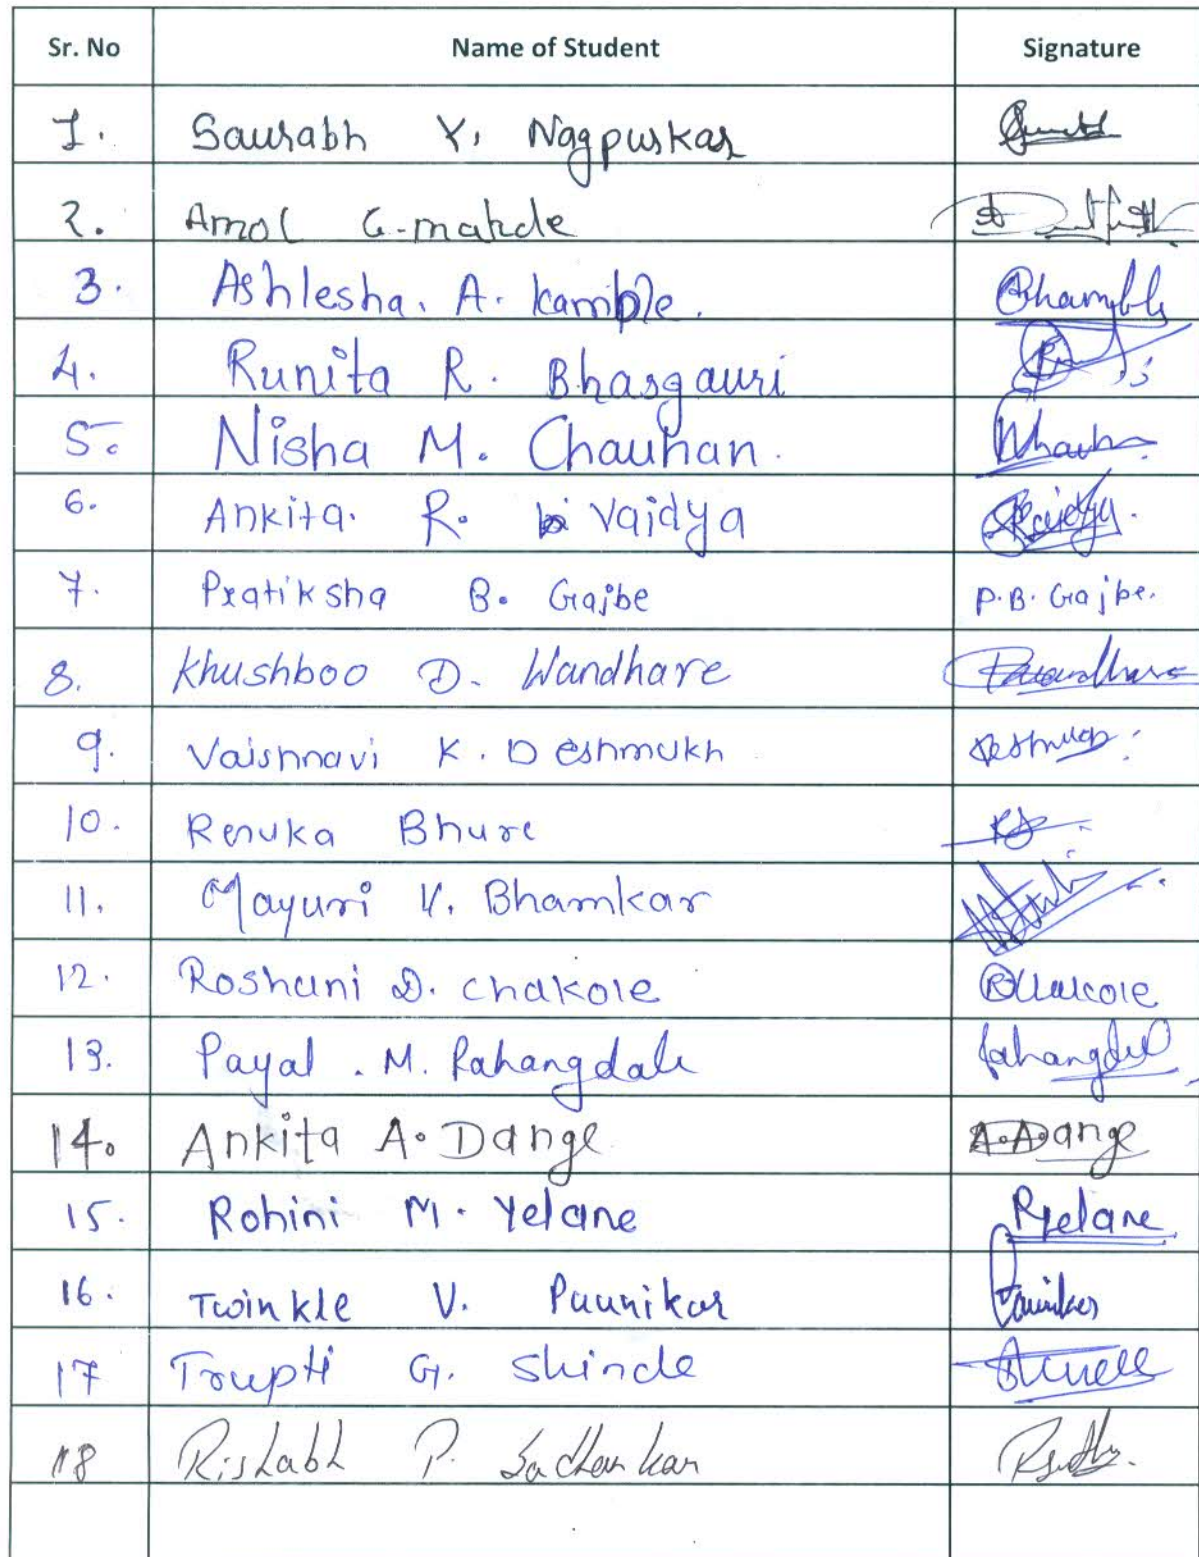 Sr. No Name of Student Signature
1. Saurabh Y. Nagpurkar
2. Amol G-mahde
3. Ashlesha. A. Kamble.
4. Runita R. Bhasgauri
5. Nisha M. Chauhan.
6. Ankita. R. Vaidya Vaidya.
7. Pratiksha B. Gajbe P.B. Gajbe.
8. Khushboo D. Wandhare
9. Vaishnavi K. Deshmukh
10. Renuka Bhure
11. Mayuri V. Bhamkar
12. Roshani D. Chakole
13. Payal . M. Rahangdale Rahangdale
14. Ankita A. Dange A.A.Dange
15. Rohini M. Yelane RYelane
16. Twinkle V. Paunikar Paunikar
17 Trupti G. Shinde
18 Rishabh P. Sadhankar